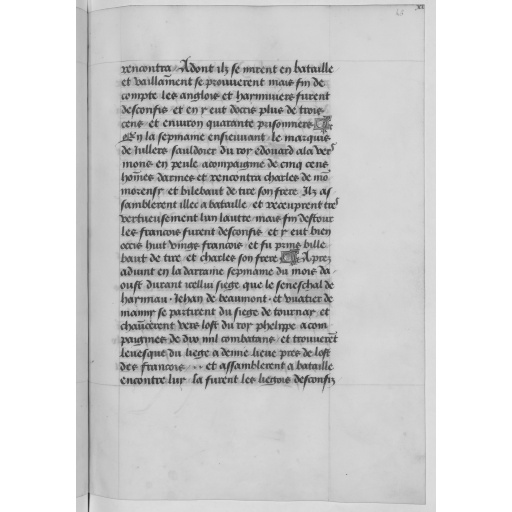 rencontra Adont ilz se mirent en bataille
et vaillãment se prouuerent mais fin de
compte les anglois et haynnuiers furent
desconfis et en y eut doccis plus de trois
cens et enuiron quarante prisonniers
En la sepmaine ensieuuant le marquis
de Jullers sauldoier du roy edouard ala ver
mons en peule acompaignie de cinq cens
hõmes darmes et rencontra charles de mõ
morensy et bilebaut de trie son frere Ilz as
samblerent illec a bataille et receuprent tres
vertueusement lun lautre mais fin destour
les francois furent desconfis et y eut bien
occis huit vings francois et fu prins bille
baut de trie et charles son frere Aprez
aduint en la darraine sepmaine du mois da
oust durant icellui siege que le seneschal de
haynnau Jehan de beaumont et vuatier de
mauny se partirent du siege de tournay et
cheuaucerent vers lost du roy phelippe acom
paignies de dix mil combatans et trouuerẽt
leuesque du liege a demie lieue pres de lost
des francois et assamblerent a bataille
encontre luy la furent les liegois desconfiz